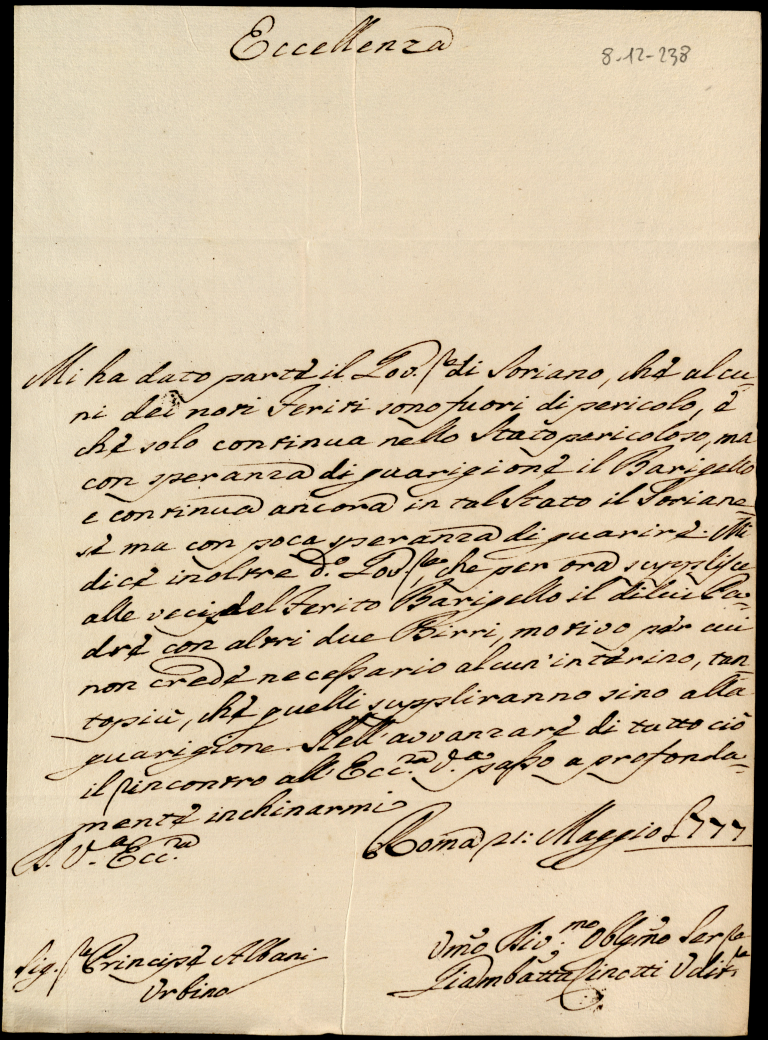 Eccellenza
8-12-238
Mi ha dato parte il Gov.re di Soriano, che alcu-
ni dei noti Feriti sono fuori di pericolo, e
che solo continua nello Stato pericoloso, ma
con speranza di guarigione il Barigello
e continua ancora in tal Stato il Soriane-
se ma con poca speranza di guarire. Mi
dice inoltre d.o Gov.re che per ora supplisce
alle veci del Ferito Barigello il di lui Pa-
dre con altri due Birri, motivo per cui
non crede necessario alcun' interino, tan
topiù, che quelli suppliranno sino alla
guarigione. Nell' avvanzare di tutto ciò
il rincontro all' Ecc.za V.a passo a profonda-
mente inchinarmi
D. V.a Ecc.za
Roma 21: Maggio 1777
Sig.re Principe Albani
Urbino
Umo Div.mo Oblgmo Ser.re
Giambatta Cinotti Udit.re